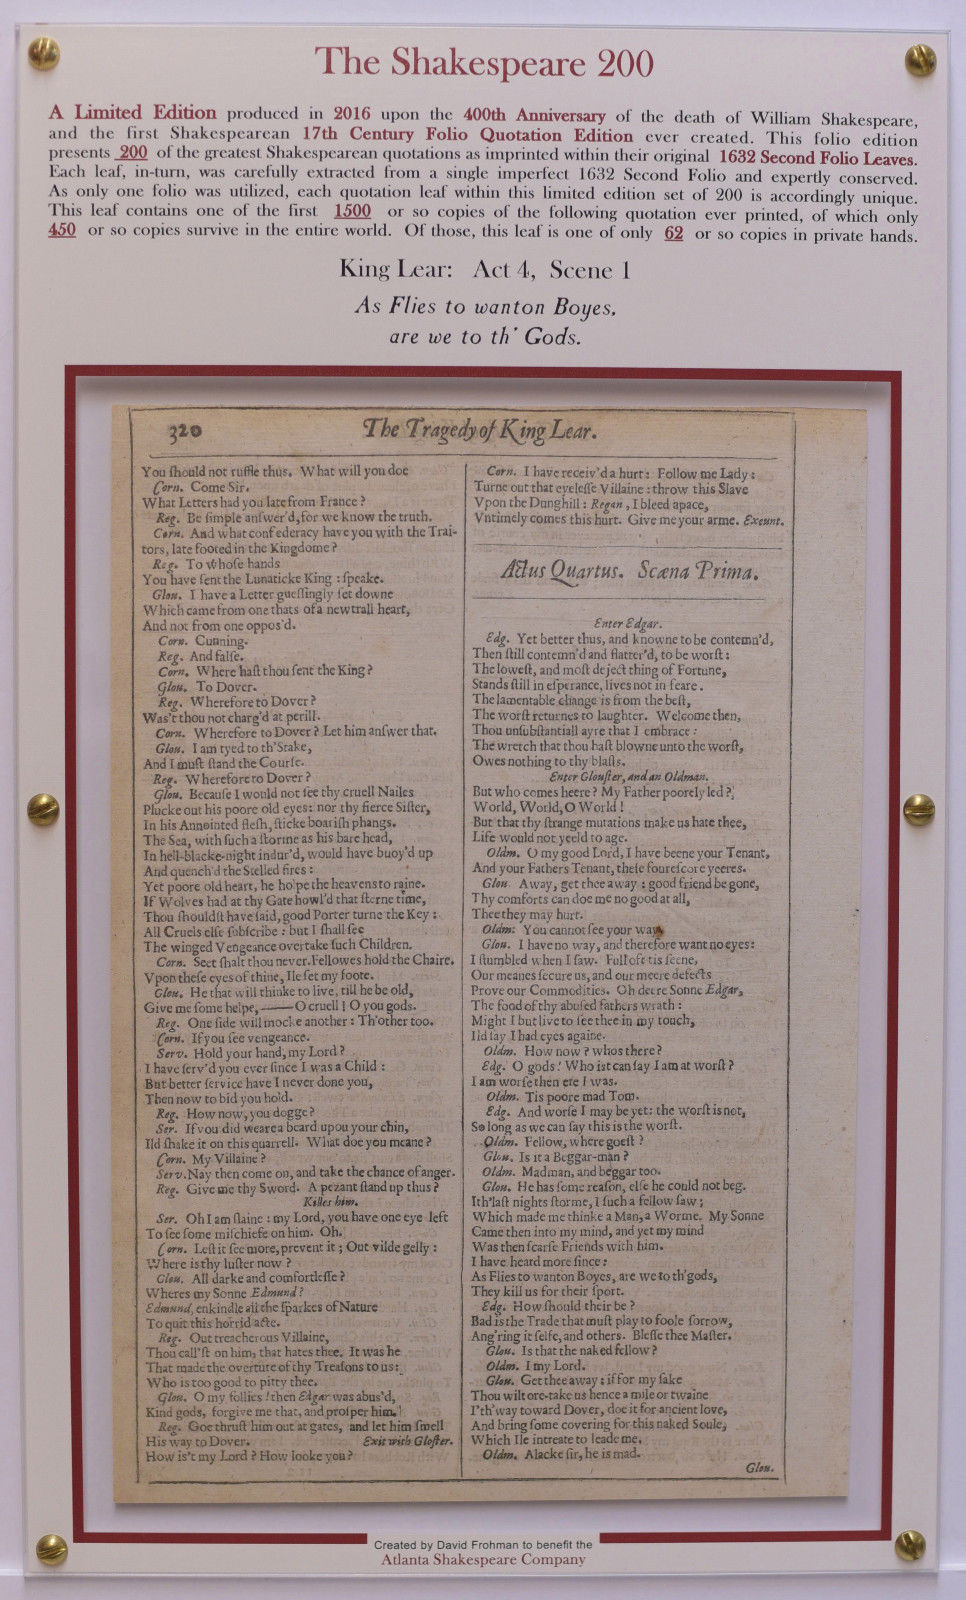 The Shakespeare 200
A Limited Edition produced in 2016 upon the 400th Anniversary of the death of William Shakespeare,
and the first Shakespearean 17th Century Folio Quotation Edition ever created. This folio edition
presents 200 of the greatest Shakespearean quotations as imprinted within their original 1632 Second Folio Leaves.
Each leaf, in-turn, was carefully extracted from a single imperfect 1632 Second Folio and expertly conserved.
As only one folio was utilized, each quotation leaf within this limited edition set of 200 is accordingly unique.
This leaf contains one of the first 1500 or so copies of the following quotation ever printed, of which only
450 or so copies survive in the entire world. Of those, this leaf is one of only 62 or so copies in private hands.
King Lear: Act 4, Scene 1
As Flies to wanton Boyes,
are we to th' Gods.
320 The Tragedy of King Lear.
You ſhould not ruffle thus. What will you doe
Corn. Come Sir.
What Letters had you late from France?
Reg. Be ſimple anſwer'd, for we know the truth.
Corn. And what confederacy have you with the Trai-
tors, late footed in the Kingdome?
Reg. To whoſe hands
You have ſent the Lunaticke King : ſpeake.
Glou. I have a Letter gueſſingly ſet downe
Which came from one thats of a newtrall heart,
And not from one oppos'd.
Corn. Cunning.
Reg. And falſe.
Corn. Where haſt thou ſent the King?
Glou. To Dover.
Reg. Wherefore to Dover?
Was't thou not charg'd at perill.
Corn. Wherefore to Dover? Let him anſwer that.
Glou. I am tyed to th'Stake,
And I muſt ſtand the Courſe.
Reg. Wherefore to Dover?
Glou. Becauſe I would not ſee thy cruell Nailes
Plucke out his poore old eyes: nor thy fierce Siſter,
In his Annointed fleſh, ſticke boariſh phangs.
The Sea, with ſuch a ſtorme as his bare head,
In hell-blacke-night indur'd, would have buoy'd up
And quench'd the Stelled fires :
Yet poore old heart, he holpe the heavens to raine.
If Wolves had at thy Gate howl'd that ſterne time,
Thou ſhouldſt have ſaid, good Porter turne the Key :
All Cruels elſe ſubſcribe : but I ſhall ſee
The winged Vengeance overtake ſuch Children.
Corn. See't ſhalt thou never. Fellowes hold the Chaire.
Vpon theſe eyes of thine, Ile ſet my foote.
Glou. He that will thinke to live, till he be old,
Give me ſome helpe, —— O cruell ! O you gods.
Reg. One ſide will mocke another : Th'other too.
Corn. If you ſee vengeance.
Serv. Hold your hand, my Lord?
I have ſerv'd you ever ſince I was a Child :
But better ſervice have I never done you,
Then now to bid you hold.
Reg. How now, you dogge?
Ser. If you did weare a beard upou your chin,
Ild ſhake it on this quarrell. What doe you meane?
Corn. My Villaine?
Serv. Nay then come on, and take the chance of anger.
Reg. Give me thy Sword. A pezant ſtand up thus?
Killes him.
Ser. Oh I am ſlaine : my Lord, you have one eye left
To ſee ſome miſchiefe on him. Oh.
Corn. Leſt it ſee more, prevent it ; Out vilde gelly :
Where is thy luſter now?
Glou. All darke and comfortleſſe?
Wheres my Sonne Edmund?
Edmund, enkindle all the ſparkes of Nature
To quit this horrid acte.
Reg. Out treacherous Villaine,
Thou call'ſt on him, that hates thee. It was he
That made the overture of thy Treaſons to us:
Who is too good to pitty thee.
Glou. O my follies ! then Edgar was abus'd,
Kind gods, forgive me that, and proſper him.
Reg. Goe thruſt him out at gates, and let him ſmell
His way to Dover. Exit with Gloſter.
How is't my Lord? How looke you?
Corn. I have receiv'd a hurt : Follow me Lady :
Turne out that eyeleſſe Villaine : throw this Slave
Vpon the Dunghill : Regan, I bleed apace,
Vntimely comes this hurt. Give me your arme. Exeunt.
Actus Quartus. Scæna Prima.
Enter Edgar.
Edg. Yet better thus, and knowne to be contemn'd,
Then ſtill contemn'd and flatter'd, to be worſt :
The loweſt, and moſt deject thing of Fortune,
Stands ſtill in eſperance, lives not in feare.
The lamentable change is from the beſt,
The worſt returnes to laughter. Welcome then,
Thou unſubſtantiall ayre that I embrace :
The wretch that thou haſt blowne unto the worſt,
Owes nothing to thy blaſts.
Enter Glouſter, and an Oldman.
But who comes heere? My Father poorely led?
World, World, O World !
But that thy ſtrange mutations make us hate thee,
Life would not yeeld to age.
Oldm. O my good Lord, I have beene your Tenant,
And your Fathers Tenant, theſe foureſcore yeeres.
Glou. Away, get thee away : good friend be gone,
Thy comforts can doe me no good at all,
Thee they may hurt.
Oldm. You cannot ſee your way.
Glou. I have no way, and therefore want no eyes :
I ſtumbled when I ſaw. Full oft tis ſeene,
Our meanes ſecure us, and our meere defects
Prove our Commodities. Oh deere Sonne Edgar,
The food of thy abuſed fathers wrath :
Might I but live to ſee thee in my touch,
Ild ſay I had eyes againe.
Oldm. How now? whos there?
Edg. O gods ! Who iſt can ſay I am at worſt?
I am worſe then ere I was.
Oldm. Tis poore mad Tom.
Edg. And worſe I may be yet : the worſt is not,
So long as we can ſay this is the worſt.
Oldm. Fellow, where goeſt?
Glou. Is it a Beggar-man?
Oldm. Madman, and beggar too.
Glou. He has ſome reaſon, elſe he could not beg.
Ith'laſt nights ſtorme, I ſuch a fellow ſaw ;
Which made me thinke a Man, a Worme. My Sonne
Came then into my mind, and yet my mind
Was then ſcarſe Friends with him.
I have heard more ſince :
As Flies to wanton Boyes, are we to th'gods,
They kill us for their ſport.
Edg. How ſhould their be?
Bad is the Trade that muſt play to foole ſorrow,
Ang'ring it ſelfe, and others. Bleſſe thee Maſter.
Glou. Is that the naked fellow?
Oldm. I my Lord.
Glou. Get thee away : if for my ſake
Thou wilt ore-take us hence a mile or twaine
I'th'way toward Dover, doe it for ancient love,
And bring ſome covering for this naked Soule,
Which Ile intreate to leade me.
Oldm. Alacke ſir, he is mad.
Glou.
Created by David Frohman to benefit the
Atlanta Shakespeare Company